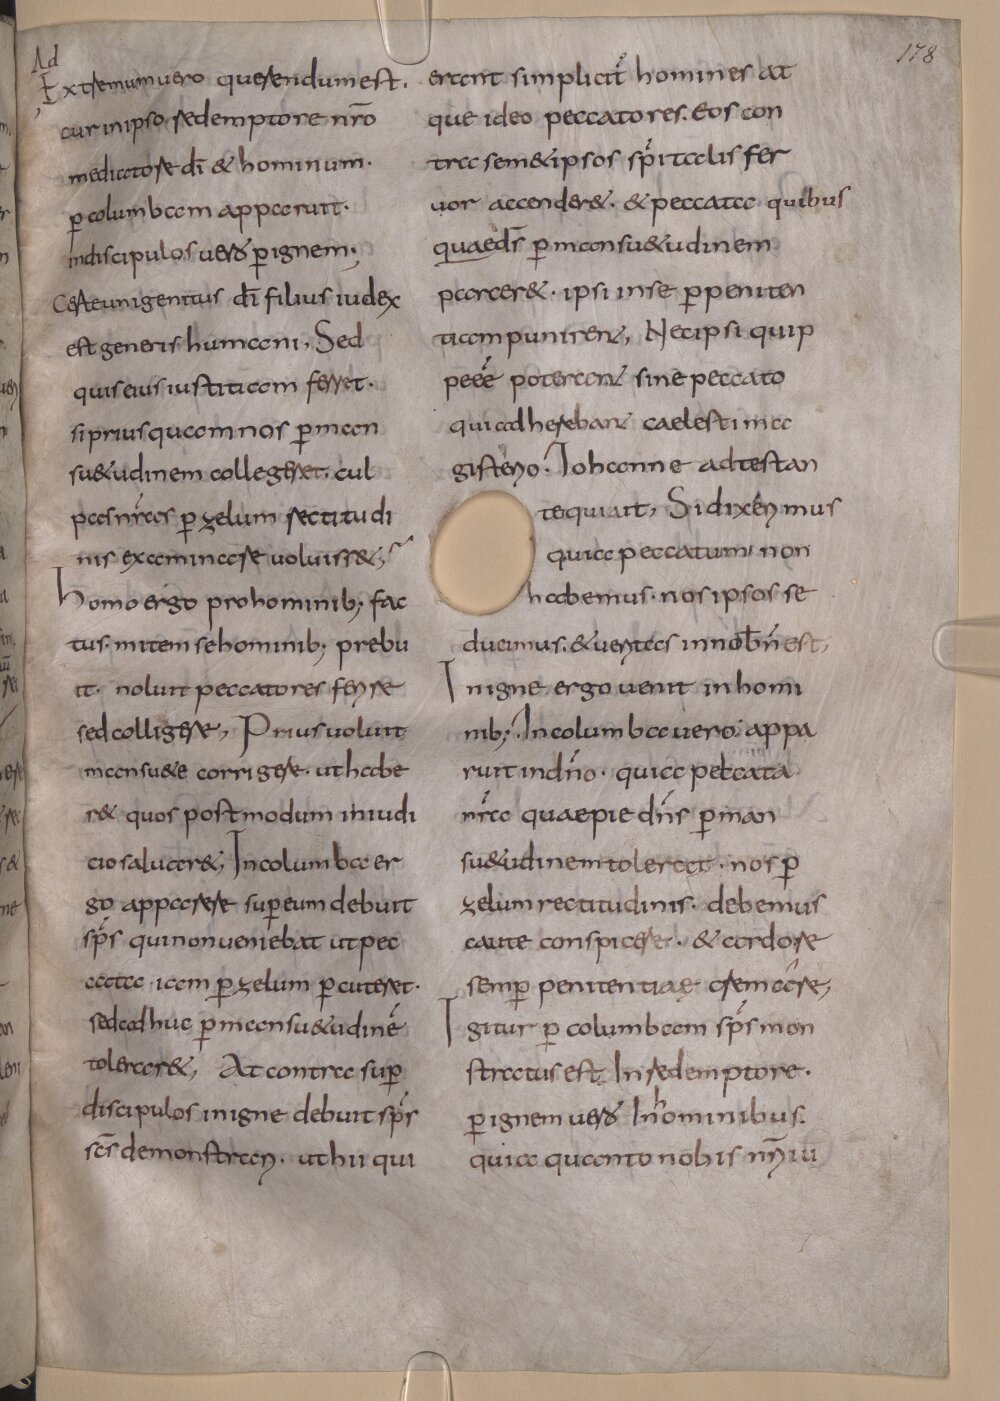 178
Ad
Extremum uero querendum est.
cur in ipso redemptore nr̄o
mediatore dī & hominum.
p̲ columbam apparuit.
in discipulos uero p̲ ignem;
Certe unigenitus dī filius iudex
est generis humani, Sed
quis eius iustitiam ferret.
si prius quam nos p̲ man
su&udinem colleger&. cul
pas nr̄as p̲ zelum rectitudi
nis examinare uoluiss&;
homo ergo pro hominib; fac
tus. mitem se hominib; prebu
it. noluit peccatores ferire
sed colligere, Prius uoluit
mansu&e corrigere. ut habe
r& quos postmodum in iudi
cio saluar&, In columba er
go apparere sup̲ eum debuit
sp̄s qui non ueniebat ut pec
cata iam p̲ zelum p̲cuteret.
sed adhuc p̲ mansu&udinē
tolerar&, At contra sup̲
discipulos in igne debuit sp̄s
sc̄s demonstrari. ut hii qui
erant simplicit̄ homines at
que ideo peccatores. Eos con
tra sem&ipsos sp̄italis fer
uor accender&. & peccata quibus
quae d̄s p̲ mansu&udinem
parcer&. ipsi in se p̲ peniten
tiam punirent, Nec ipsi quip
pe eē poterant sine peccato
qui adherebant caelesti ma
gisterio. Iohanne adtestan
te qui ait, Si dixerimus
quia peccatum non
habemus. nos ipsos se
ducimus. & ueritas in nob̄ n̄ est,
In igne ergo uenit in homi
nib; In columba uero appa
ruit in dn̄o. quia peccata
nr̄a quae pie dn̄s p̲ man
su&udinem tolerat. nos p̲
zelum rectitudinis. debemus
caute conspicere. & ardore
semp̲ penitentiae cremare,
Igitur p̲ columbam sp̄s mon
stratus est, In redemptore.
p̲ ignem uero In hominibus.
quia quanto nobis nr̄i iu